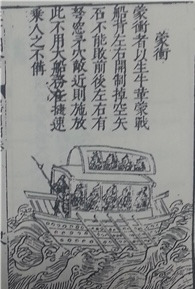 蒙衝
蒙衝者以生牛革蒙戰
船背左右開制掉空矢
石不能敗前後左右有
弩窓矛穴敵近則施放
此不用大船務在捷速
乘人之不備